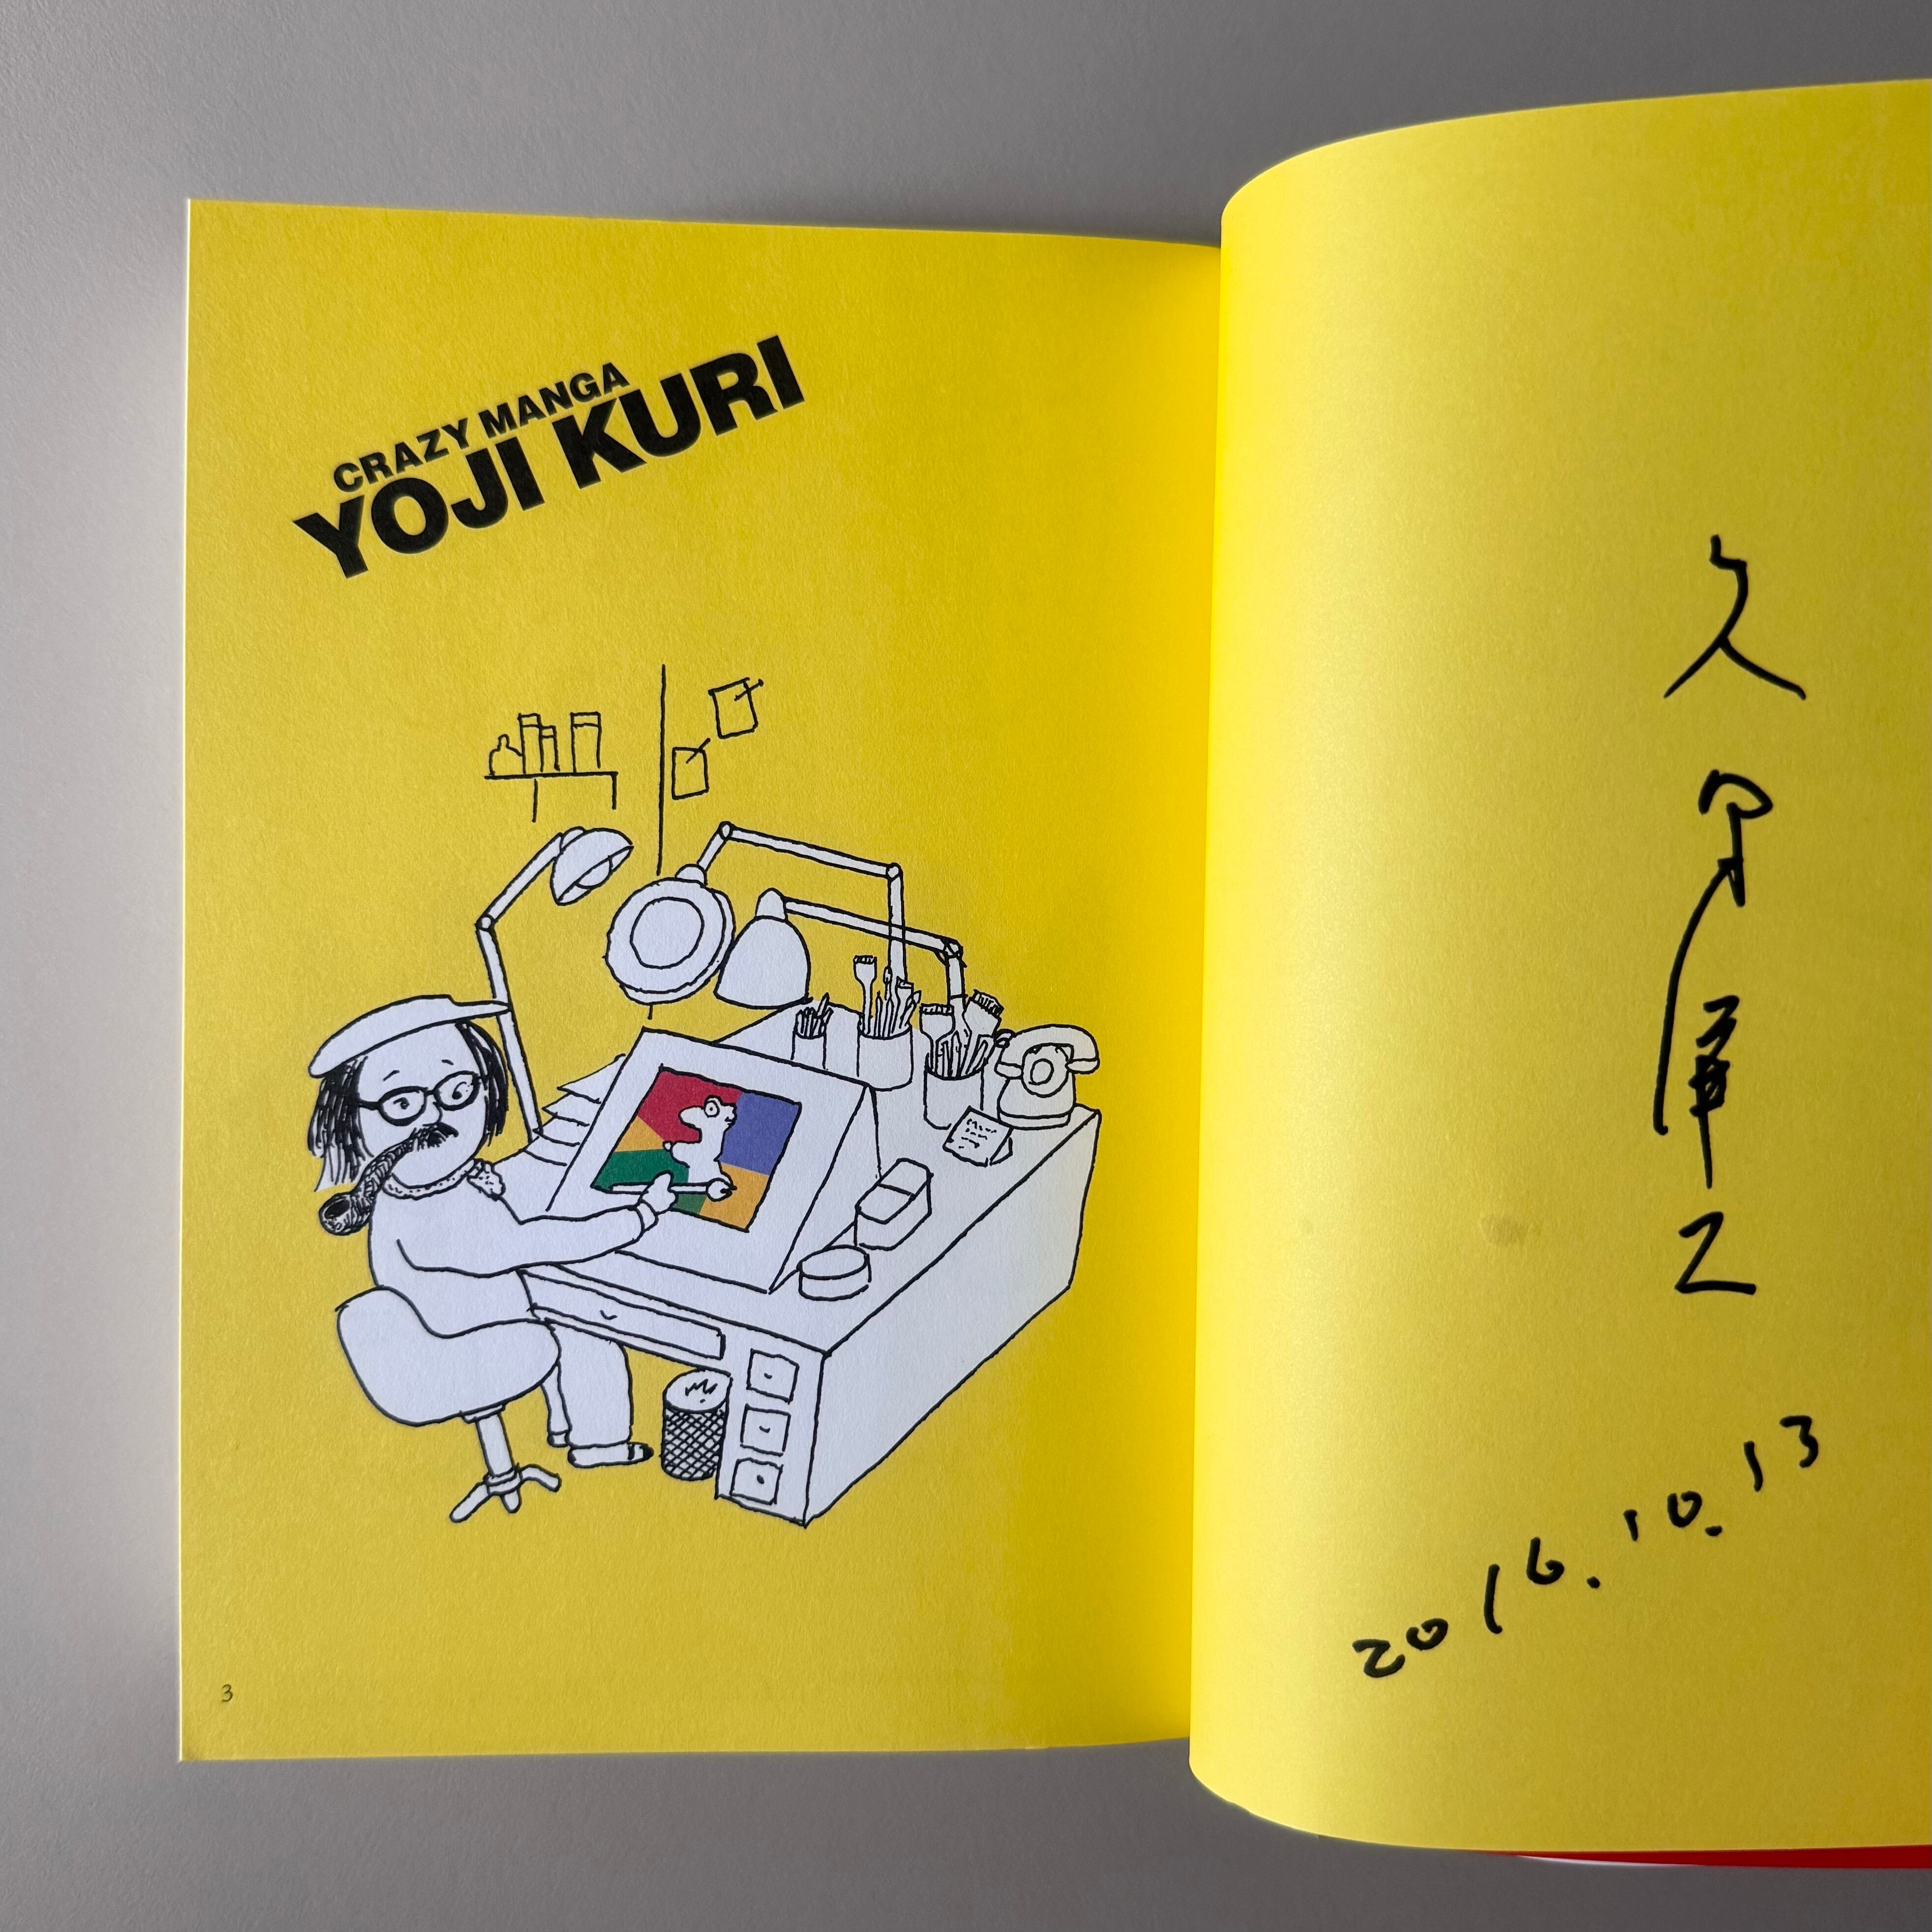 CRAZY MANGA
YOJI KURI
3
久里洋二
2016.10.13